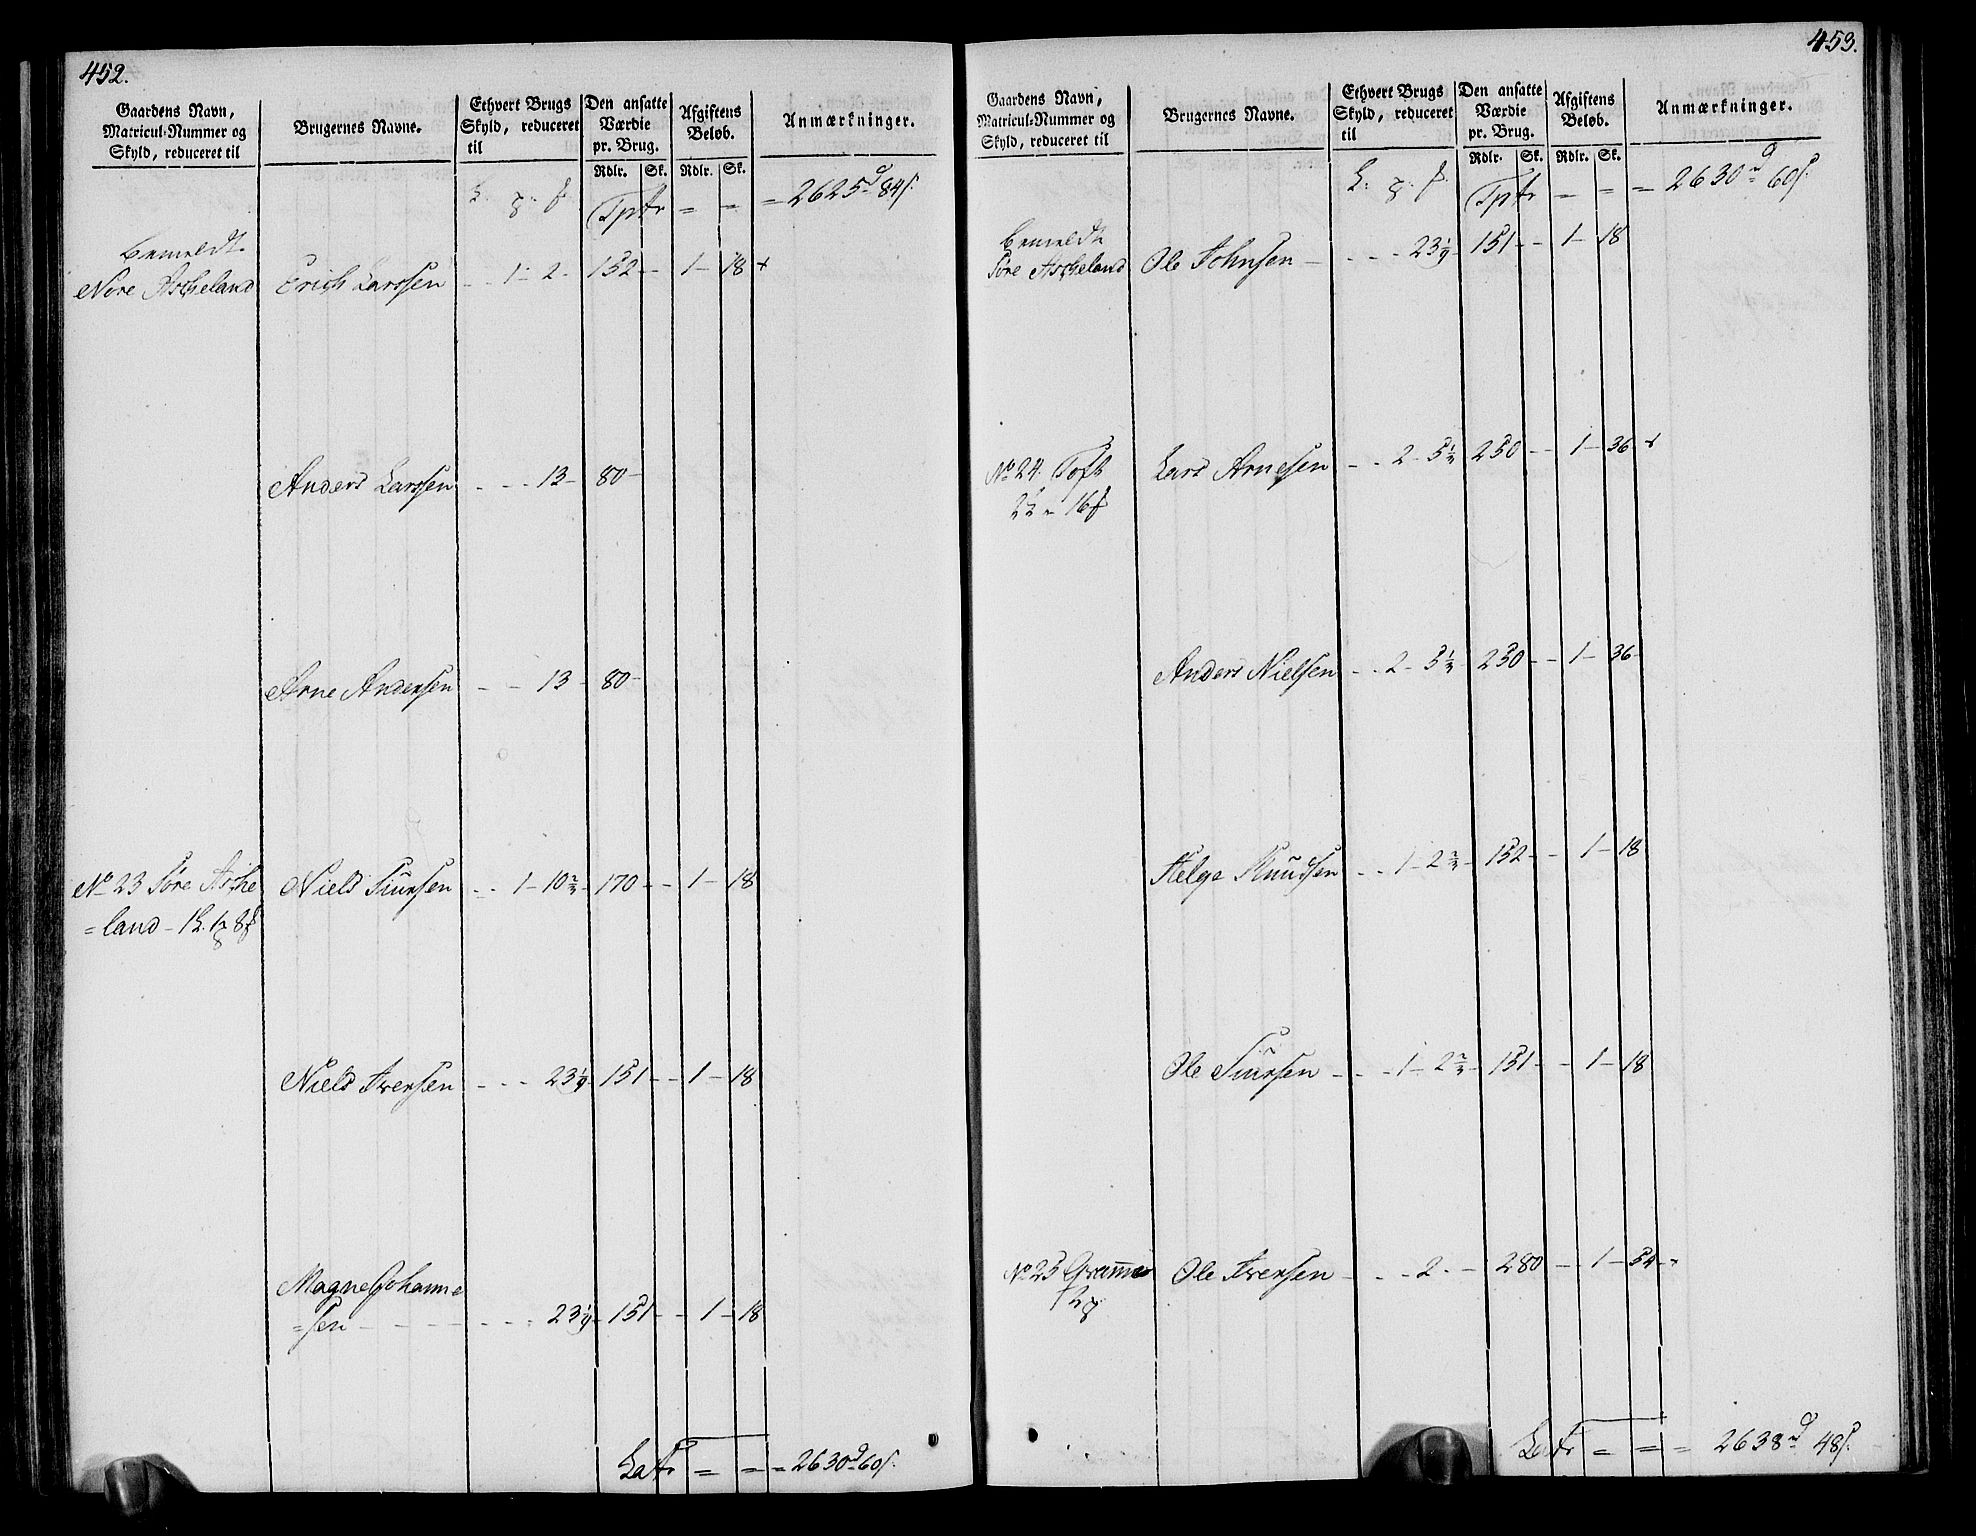 452.
Gaardens Navn, Matricul-Nummer og Skyld, reduceret til | Brugernes Navne. | Ethvert Brugs Skyld, reduceret til | Den ansatte Værdie pr. Brug. Rdlr. Sk. | Afgiftens Beløb. Rdlr. Sk. | Anmærkninger.
Tptr = = = 2625d 84s.
bemeldte
Nore Ascheland Erich Larssen - - 1 - 2 - 152 - - 1 - 18 +
Anders Larssen - - - 13 - 80 -
Arne Andersen - - 13 - 80 -
No 23 Søre Asche Niels Siursen - - 1 - 10 2/3 - 170 - - 1 - 18
=land -
Niels Iversen - - - 23 1/9 - 151 - - 1 - 18
Magne Johanne
=sen - - - - - - - 23 1/9 - 151 - - 1 - 18
Latr = = = 2630d 60s.
453.
Gaardens Navn, Matricul-Nummer og Skyld, reduceret til | Brugernes Navne. | Ethvert Brugs Skyld, reduceret til | Den ansatte Værdie pr. Brug. Rdlr. Sk. | Afgiftens Beløb. Rdlr. Sk. | Anmærkninger.
Tptr = = = 2630d 60s.
bemeldte
Søre Ascheland Ole Johnsen - - - - 23 1/9 - 151 - - 1 - 18
No 24. Toft Lars Arnesen - - 2 - 5 1/3 250 - - 1 - 36 +
Anders Nielsen - - 2 - 5 1/3 - 250 - - 1 - 36 -
Helge Knudsen - - 1 - 2 2/3 - 152 - - 1 - 18
Ole Siursen - - - 1 - 2 2/3 - 151 - - 1 - 18
No 25 Gramme Ole Iversen - - - 2 - - 280 - - 1 - 54 -
Latr = = = 2638d 48s.